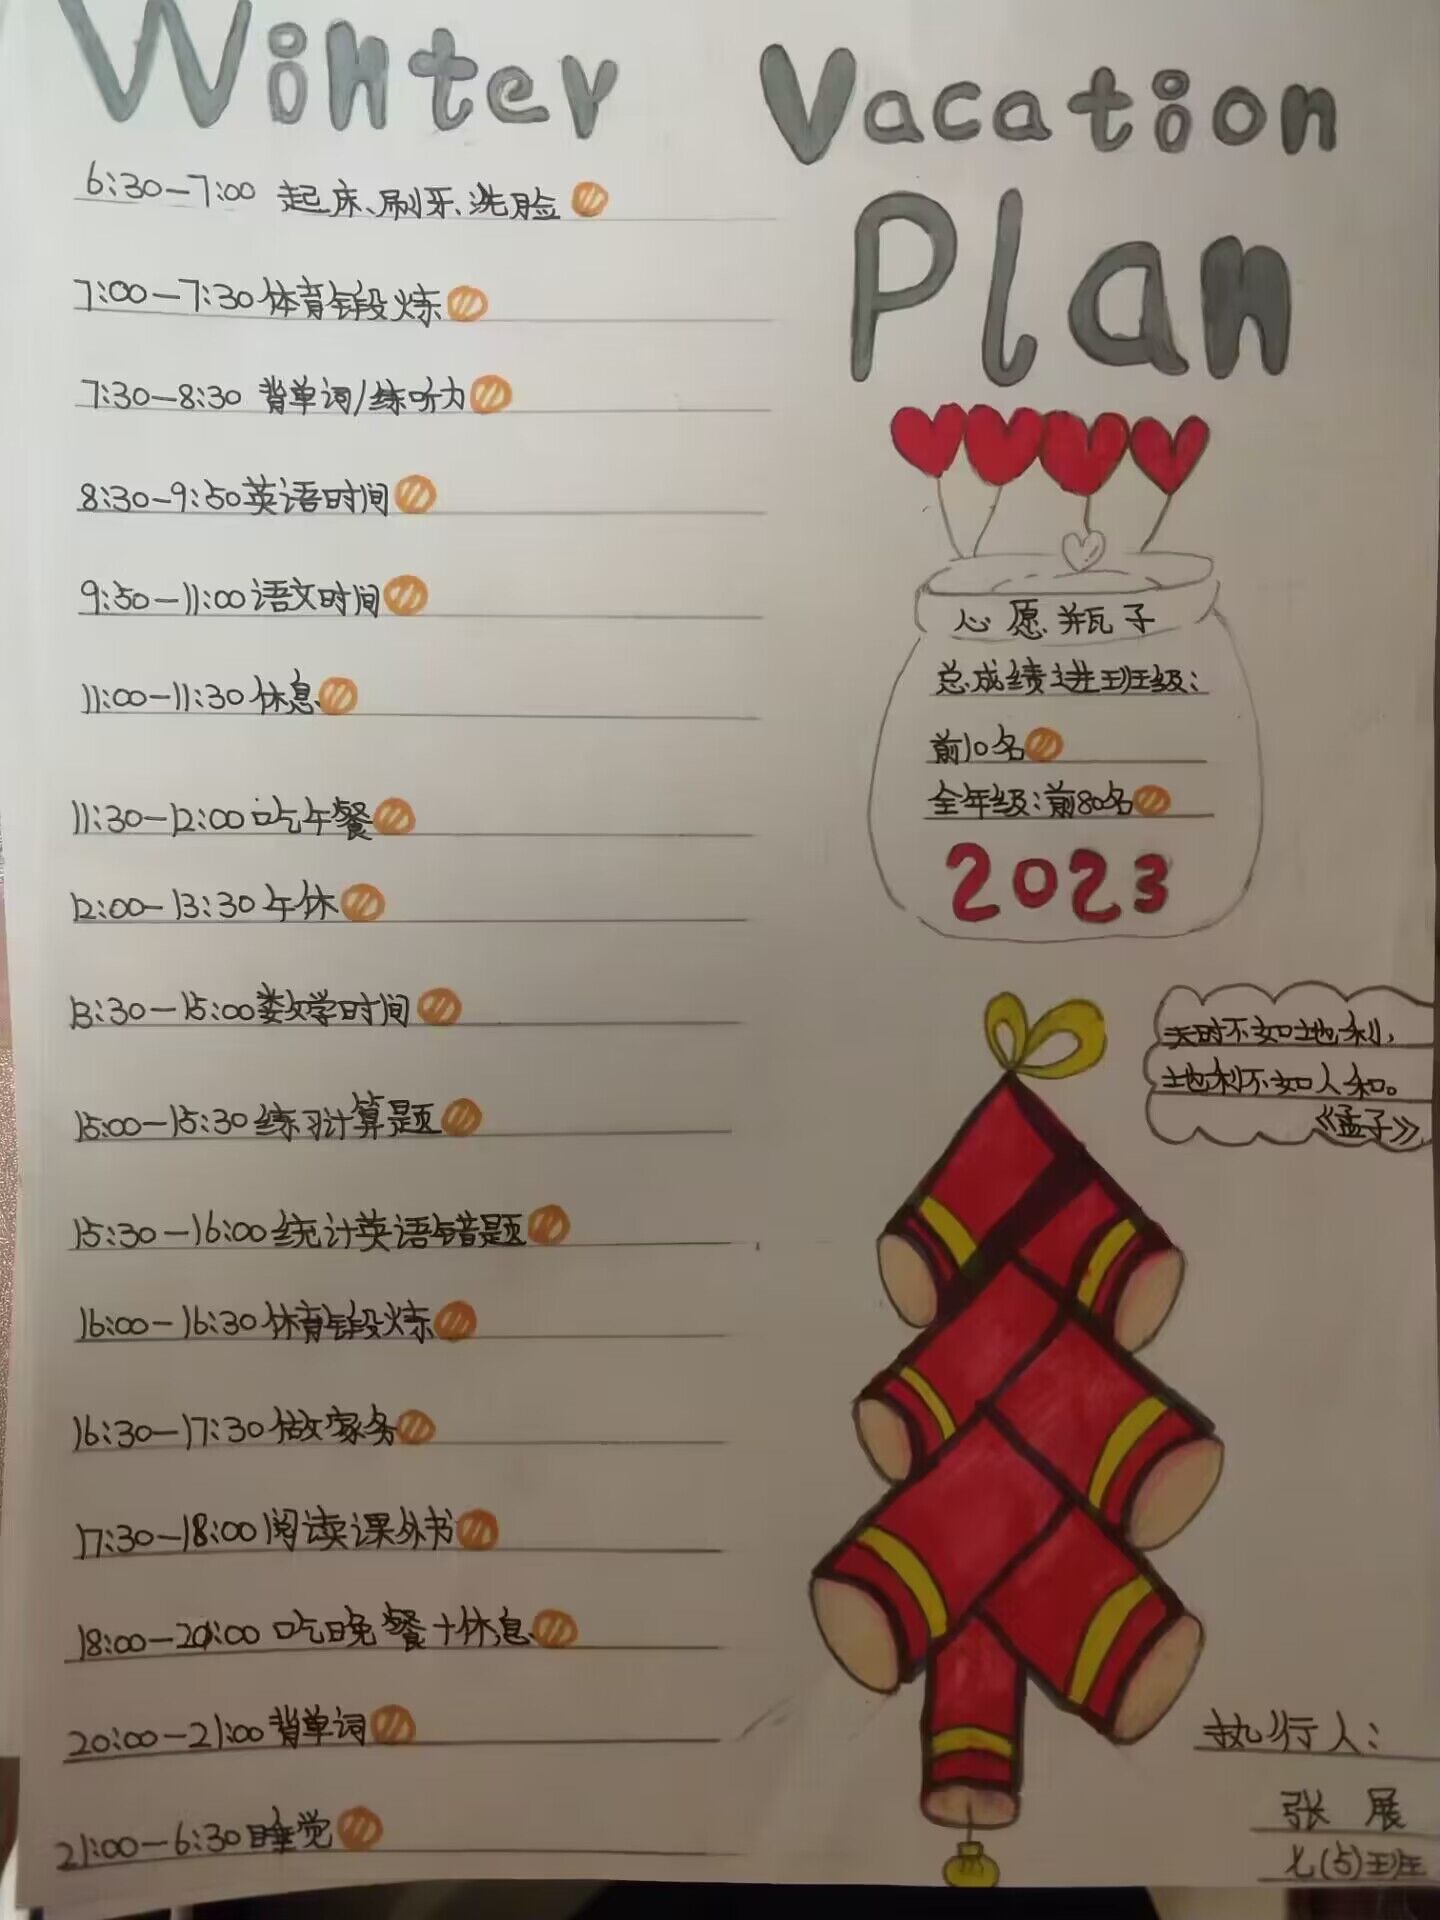 Winter Vacation
Plan
6:30-7:00 起床、刷牙、洗脸
7:00-7:30 体育锻炼
7:30-8:30 背单词/练听力
8:30-9:50 英语时间
9:50-11:00 语文时间
11:00-11:30 休息
11:30-12:00 吃午餐
12:00-13:30 午休
13:30-15:00 数学时间
15:00-15:30 练习计算题
15:30-16:00 统计英语错题
16:00-16:30 体育锻炼
16:30-17:30 做家务
17:30-18:00 阅读课外书
18:00-20:00 吃晚餐+休息
20:00-21:00 背单词
21:00-6:30 睡觉
心愿瓶子
总成绩进班级:
前10名
全年级:前80名
2023
天时不如地利,
地利不如人和。
《孟子》
执行人:
张展
七(5)班